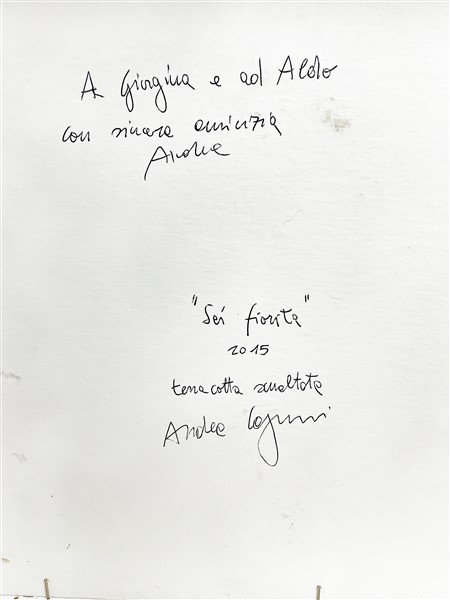 A Giorgina e ad Aldo
con sincera amicizia
Andrea
"Sei fiorita"
2015
terracotta smaltata
Andrea